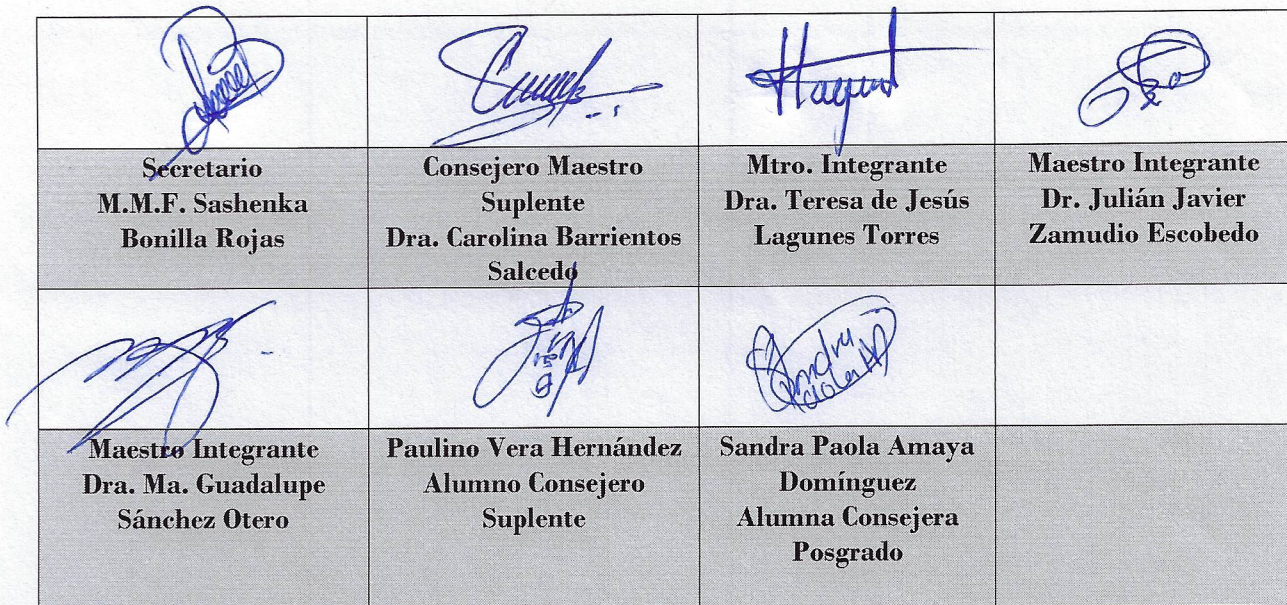 Secretario
M.M.F. Sashenka
Bonilla Rojas
Consejero Maestro
Suplente
Dra. Carolina Barrientos
Salcedo
Mtro. Integrante
Dra. Teresa de Jesús
Lagunes Torres
Maestro Integrante
Dr. Julián Javier
Zamudio Escobedo
Maestro Integrante
Dra. Ma. Guadalupe
Sánchez Otero
Paulino Vera Hernández
Alumno Consejero
Suplente
Sandra Paola Amaya
Domínguez
Alumna Consejera
Posgrado